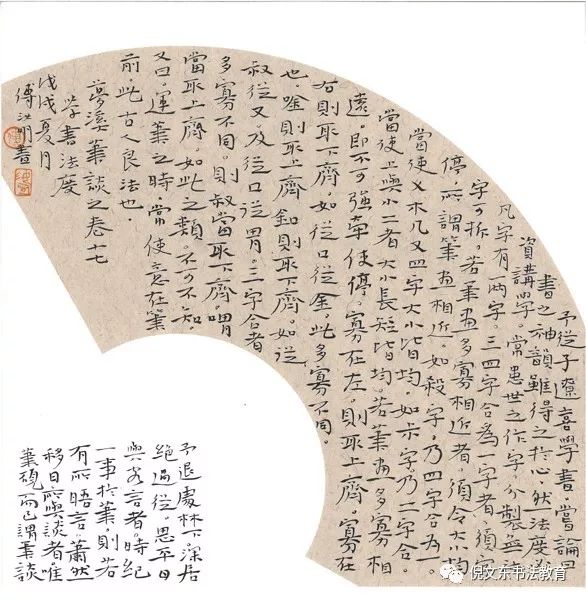 予從子遼喜學書。嘗論曰
書之神韻雖得之於心。然法度必
資講學。常患世之作字。分製無法。
凡字有一兩字。三四字合為一字者。須字
字可拆。若筆畫多寡相近者。須令大小均
停。所謂筆畫相近。如殺字。乃四字合為一。
當使乂木几又四字大小皆均。如尗字。乃二字合。
當使上與小二者。大小長短皆均。若筆畫多寡相
遠。即不可強牽使停。寡在左。則取上齊。寡在
右則取下齊。如從口從金。此多寡不同。
也。唫則取上齊。釦則取下齊。如從
叔從又。及從口從胃。三字合者
多寡不同。則叔當取下齊。喟
當取上齊。如此之類。不可不知。
又曰。運筆之時。常使意在筆
前。此古人良法也。
夢溪筆談之卷十七
学書法度
戊戌夏月
傅江明書
予退處林下。深居
絕過從。思平日
與客言者。時紀
一事於筆。則若
有所晤言。蕭然
移日。所與談者。唯
筆硯而已。謂筆談
倪文东书法教育